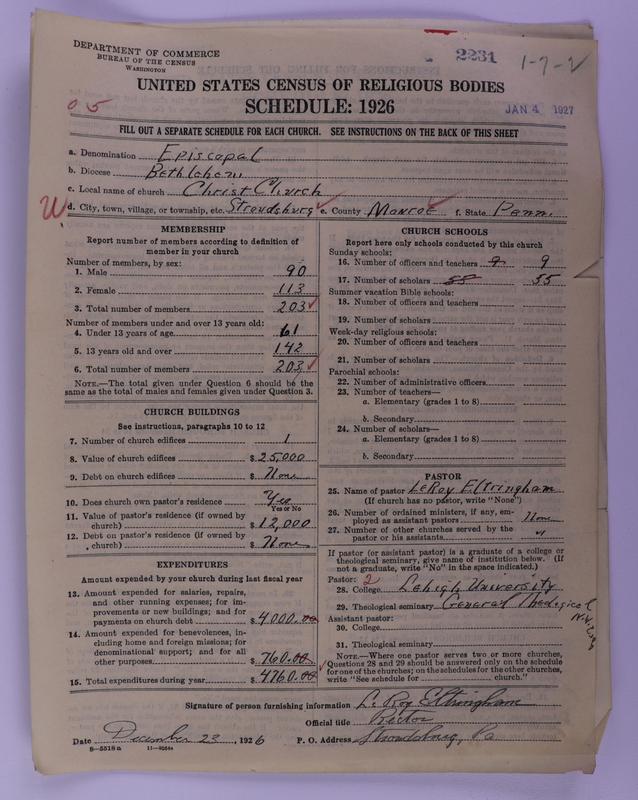 DEPARTMENT OF COMMERCE
BUREAU OF THE CENSUS
WASHINGTON
2231
1-7-2
UNITED STATES CENSUS OF RELIGIOUS BODIES
SCHEDULE: 1926
05
JAN 4 1927
FILL OUT A SEPARATE SCHEDULE FOR EACH CHURCH. SEE INSTRUCTIONS ON THE BACK OF THIS SHEET
a. Denomination Episcopal
b. Diocese Bethlehem
c. Local name of church Christ Church
W d. City, town, village, or township, etc. Stroudsburg e. County Monroe f. State Penn.
MEMBERSHIP
Report number of members according to definition of
member in your church
Number of members, by sex:
1. Male 90
2. Female 113
3. Total number of members 203
Number of members under and over 13 years old:
4. Under 13 years of age 61
5. 13 years old and over 142
6. Total number of members 203
NOTE.—The total given under Question 6 should be the
same as the total of males and females given under Question 3.
CHURCH BUILDINGS
See instructions, paragraphs 10 to 12
7. Number of church edifices 1
8. Value of church edifices $25,000
9. Debt on church edifices $ None
10. Does church own pastor's residence Yes
Yes or No
11. Value of pastor's residence (if owned by
church) $12,000
12. Debt on pastor's residence (if owned by
church) $ None
EXPENDITURES
Amount expended by your church during last fiscal year
13. Amount expended for salaries, repairs,
and other running expenses; for im-
provements or new buildings; and for
payments on church debt $4000.00
14. Amount expended for benevolences, in-
cluding home and foreign missions; for
denominational support; and for all
other purposes $760.00
15. Total expenditures during year $4760.00
CHURCH SCHOOLS
Report here only schools conducted by this church
Sunday schools:
16. Number of officers and teachers 9 9
17. Number of scholars 55
Summer vacation Bible schools:
18. Number of officers and teachers
19. Number of scholars
Week-day religious schools:
20. Number of officers and teachers
21. Number of scholars
Parochial schools:
22. Number of administrative officers
23. Number of teachers—
a. Elementary (grades 1 to 8)
b. Secondary
24. Number of scholars—
a. Elementary (grades 1 to 8)
b. Secondary
PASTOR
25. Name of pastor LeRoy Eltringham
(If church has no pastor, write "None")
26. Number of ordained ministers, if any, em-
ployed as assistant pastors None
27. Number of other churches served by the
pastor or his assistants "
If pastor (or assistant pastor) is a graduate of a college or
theological seminary, give name of institution below. (If
not a graduate, write "No" in the space indicated.)
Pastor: 2
28. College Lehigh University
29. Theological seminary General Theological
N.Y. City
Assistant pastor:
30. College
31. Theological seminary
NOTE.—Where one pastor serves two or more churches,
Questions 28 and 29 should be answered only on the schedule
for one of the churches; on the schedules for the other churches,
write "See schedule for church."
Signature of person furnishing information Le Roy Eltringham
Official title Rector
Date December 23, 1926 P. O. Address Stroudsburg, Pa
8—5518a